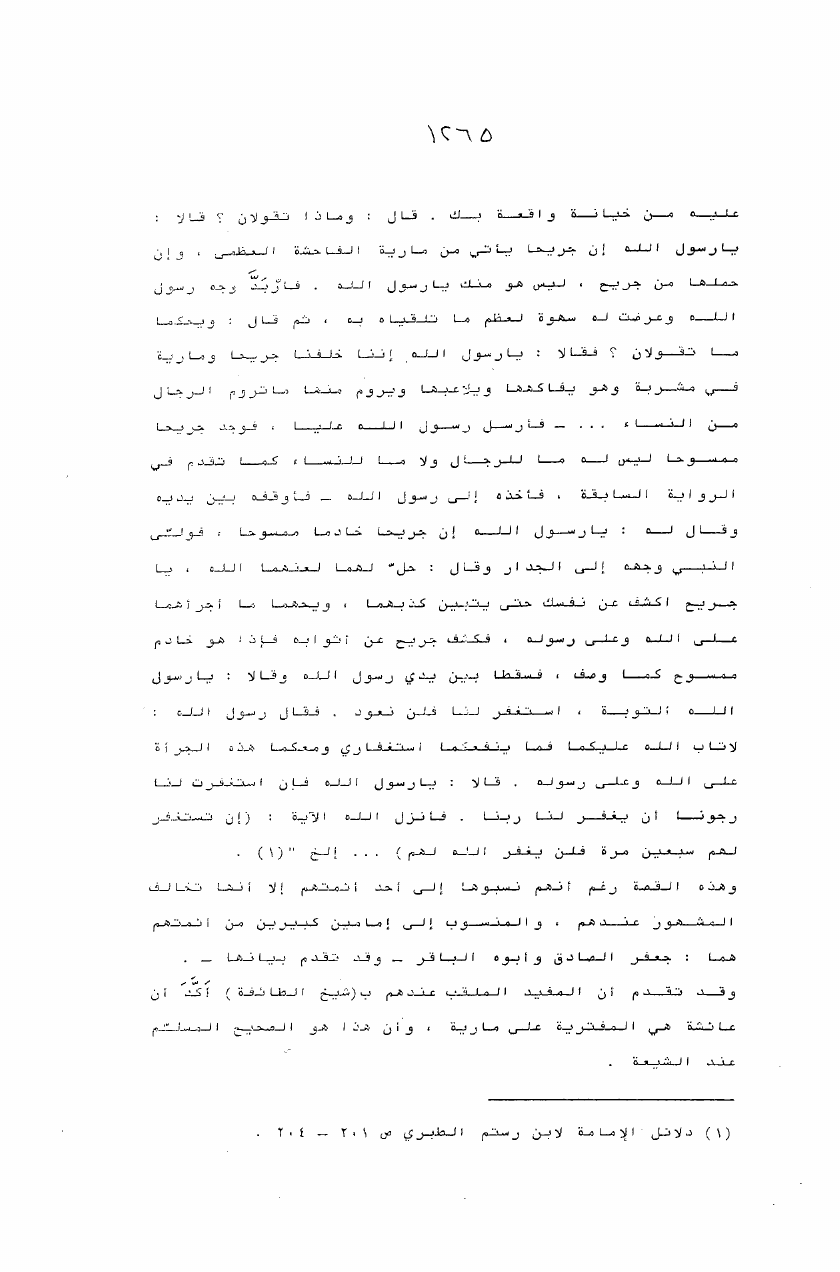 ١٢٦٥
عليه من خيانة واقعة بك . قال : وماذا تقولان ؟ قالا :
يارسول الله إن جريحا يأتي من مارية الفاحشة العظمى ، وإن
حملها من جريح ، ليس هو منك يارسول الله . فارْبَدَّ وجه رسول
الله وعرضت له سهوة لعظم ما تلقياه به ، ثم قال : ويحكما
ما تقولان ؟ فقالا : يارسول الله إننا خلفنا جريحا ومارية
في مشربة وهو يفاكهها ويلاعبها ويروم منها ماتروم الرجال
من النساء ... – فأرسل رسول الله عليا ، فوجد جريحا
ممسوحا ليس له ما للرجال ولا ما للنساء كما تقدم في
الرواية السابقة ، فأخذه إلى رسول الله – فأوقفه بين يديه
وقال له : يارسول الله إن جريحا خادما ممسوحا ، فولّى
النبي وجهه إلى الجدار وقال : حلّ لهما لعنهما الله ، يا
جريح اكشف عن نفسك حتى يتبين كذبهما ، ويحهما ما أجرأهما
على الله وعلى رسوله ، فكشف جريح عن أثوابه فإذا هو خادم
ممسوح كما وصف ، فسقطا بين يدي رسول الله وقالا : يارسول
الله التوبة ، استغفر لنا فلن نعود . فقال رسول الله :
لاتاب الله عليكما فما ينفعكما استغفاري ومعكما هذه الجرأة
على الله وعلى رسوله . قالا : يارسول الله فإن استغفرت لنا
رجونا أن يغفر لنا ربنا . فأنزل الله الآية : (إن تستغفر
لهم سبعين مرة فلن يغفر الله لهم) ... إلخ "(١) .
وهذه القصة رغم أنهم نسبوها إلى أحد أئمتهم إلا أنها تخالف
المشهور عندهم ، والمنسوب إلى إمامين كبيرين من أئمتهم
هما : جعفر الصادق وأبوه الباقر – وقد تقدم بيانها – .
وقد تقدم أن المفيد الملقب عندهم ب(شيخ الطائفة) أَكَّدَ أن
عائشة هي المفترية على مارية ، وأن هذا هو الصحيح المسلّم
عند الشيعة .
(١) دلائل الإمامة لابن رستم الطبري ص ٢٠١ – ٢٠٤ .